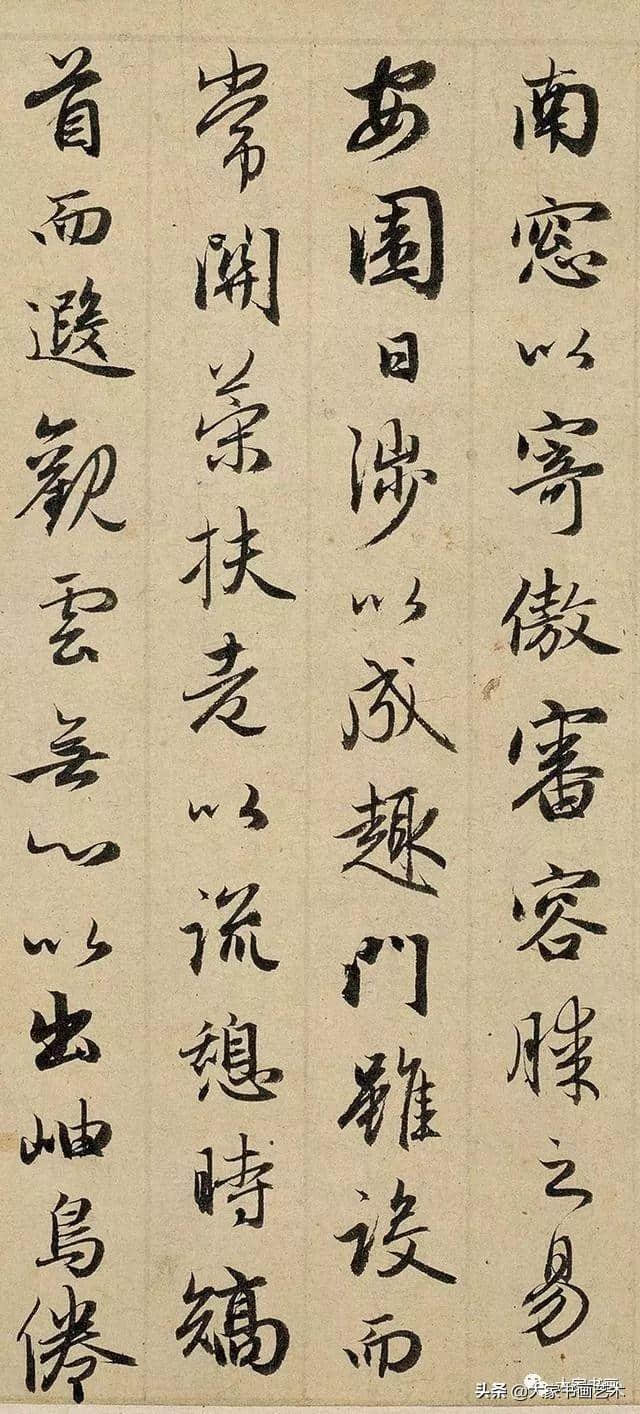 南窓以寄傲審容膝之易
安園日涉以成趣門雖設而
常開策扶老以流憩時矯
首而遐觀雲無心以出岫鳥倦
大家书画
头条 @大家书画艺术